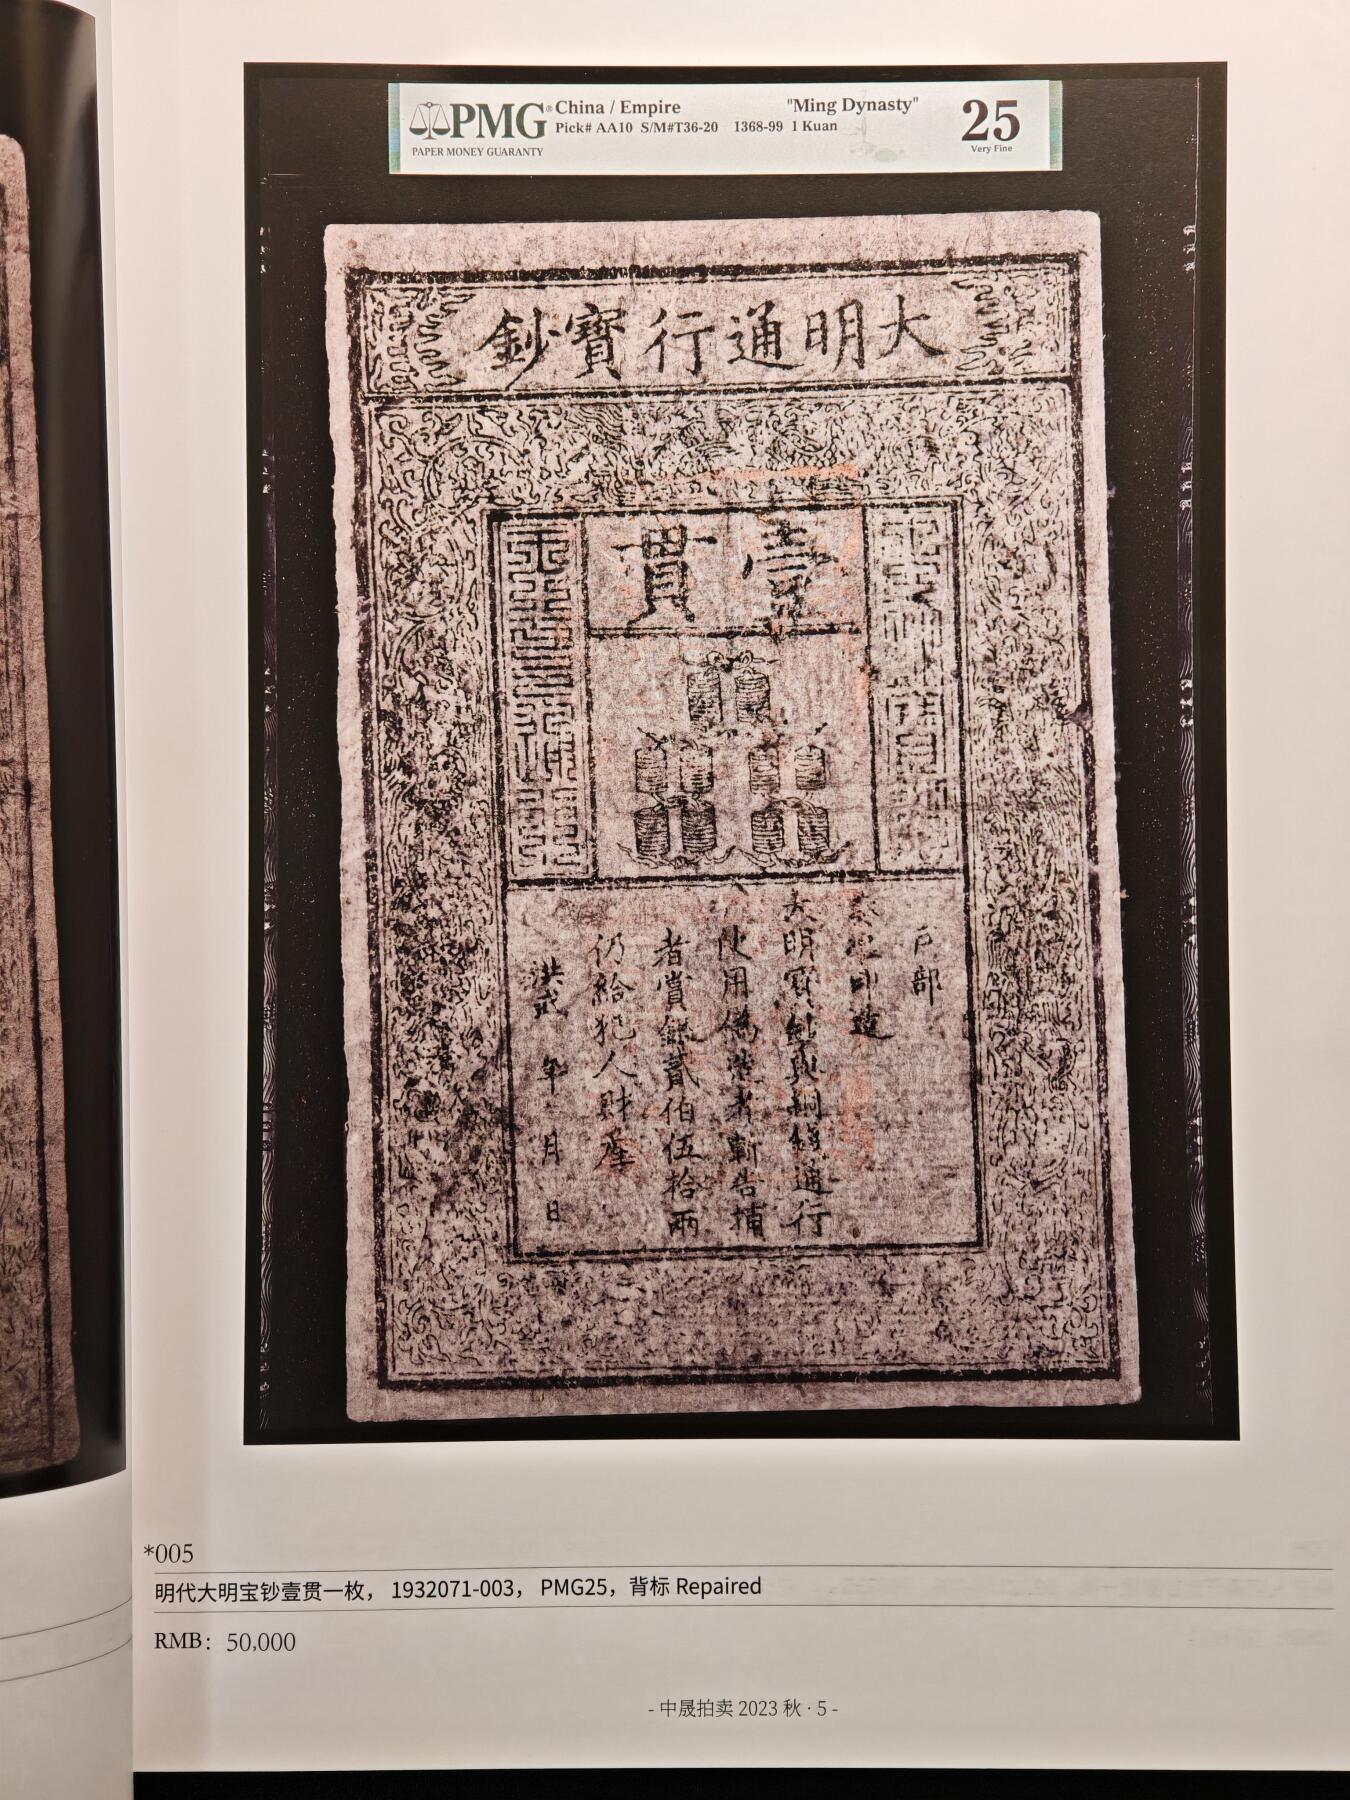 PMG® China / Empire "Ming Dynasty" 25
Pick# AA10 S/M#T36-20 1368-99 1 Kuan Very Fine
PAPER MONEY GUARANTY
大明通行寶鈔
壹貫
戶部
奏准印造
大明寶鈔與銅錢通行
使用偽造者斬告捕
者賞銀貳伯伍拾兩
仍給犯人財產
洪武 年 月 日
*005
明代大明宝钞壹贯一枚， 1932071-003， PMG25，背标 Repaired
RMB：50,000
- 中晟拍卖 2023 秋 · 5 -